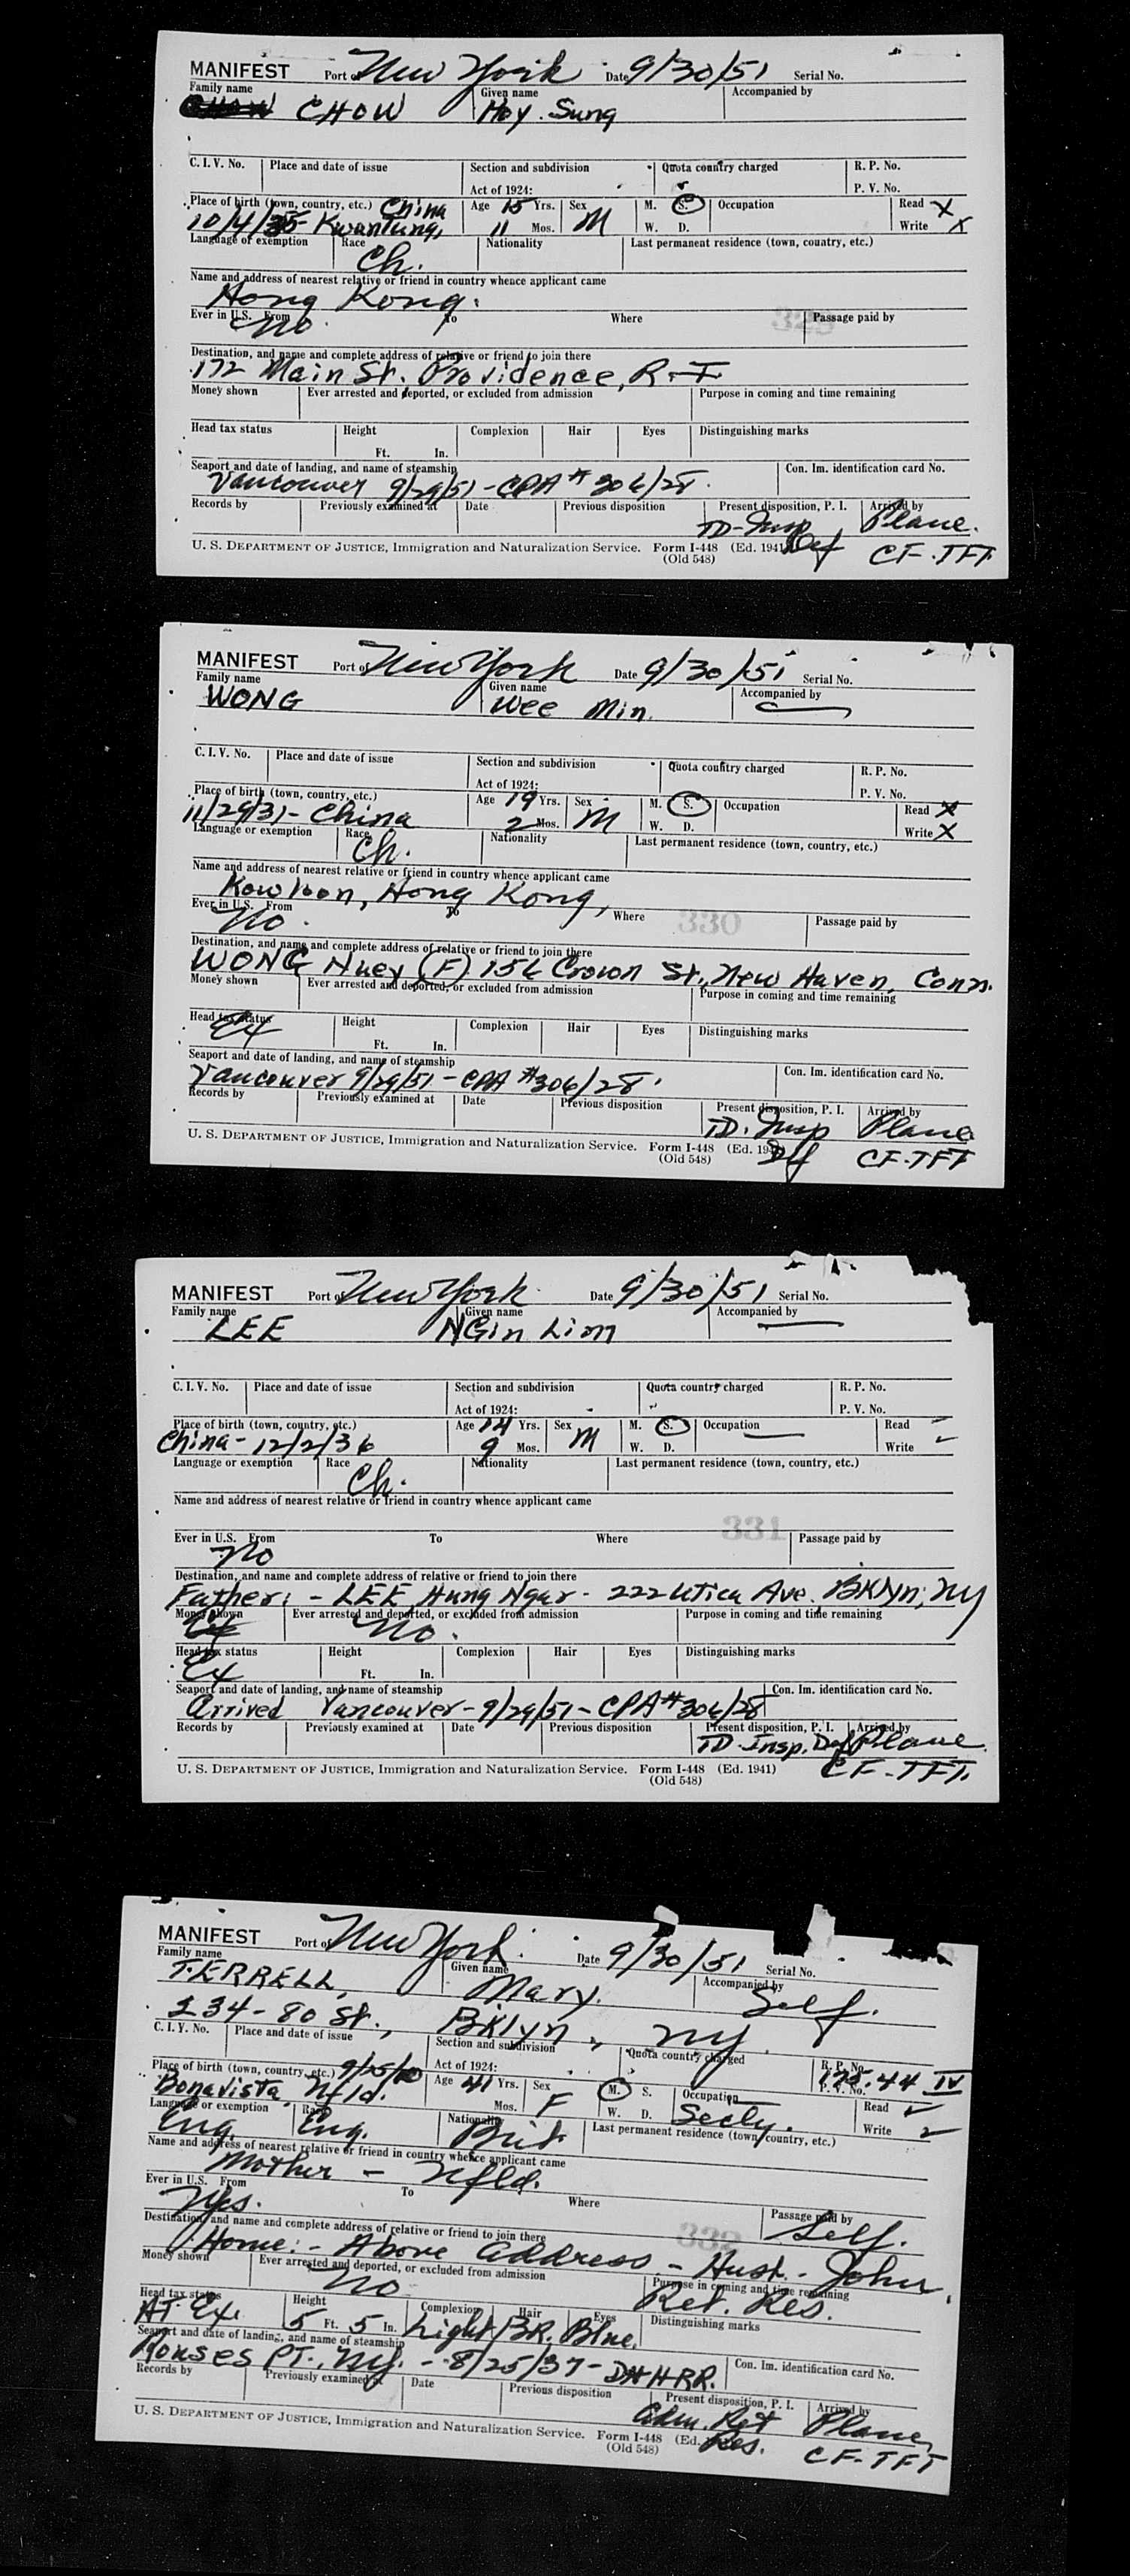 MANIFEST Port of New York Date 9/30/51 Serial No.
Family name Given name Accompanied by
CHOW Hoy Sung
C. I. V. No. Place and date of issue Section and subdivision Quota country charged R. P. No.
Act of 1924: P. V. No.
Place of birth (town, country, etc.) China Age 15 Yrs. Sex M. S. Occupation Read X
10/4/35 - Kwantung, 11 Mos. M W. D. Write X
Language or exemption Race Nationality Last permanent residence (town, country, etc.)
Ch.
Name and address of nearest relative or friend in country whence applicant came
Hong Kong.
Ever in U.S. From To Where 329 Passage paid by
No.
Destination, and name and complete address of relative or friend to join there
172 Main St. Providence, R-I
Money shown Ever arrested and deported, or excluded from admission Purpose in coming and time remaining
Head tax status Height Complexion Hair Eyes Distinguishing marks
Ft. In.
Seaport and date of landing, and name of steamship Con. Im. identification card No.
Vancouver 9/29/51 - CPA # 306/28.
Records by Previously examined at Date Previous disposition Present disposition, P. I. Arrived by
TD-Insp Plane.
U. S. DEPARTMENT OF JUSTICE, Immigration and Naturalization Service. Form I-448 (Ed. 1941) Def CF-TFT
(Old 548)
MANIFEST Port of New York Date 9/30/51 Serial No.
Family name Given name Accompanied by
WONG Wee Min.
C. I. V. No. Place and date of issue Section and subdivision Quota country charged R. P. No.
Act of 1924: P. V. No.
Place of birth (town, country, etc.) Age 19 Yrs. Sex M. S. Occupation Read X
11/29/31 - China 2 Mos. M W. D. Write X
Language or exemption Race Nationality Last permanent residence (town, country, etc.)
Ch.
Name and address of nearest relative or friend in country whence applicant came
Kowloon, Hong Kong,
Ever in U.S. From To Where 330 Passage paid by
No.
Destination, and name and complete address of relative or friend to join there
WONG Huey (F) 156 Crown St., New Haven, Conn.
Money shown Ever arrested and deported, or excluded from admission Purpose in coming and time remaining
Head tax status Height Complexion Hair Eyes Distinguishing marks
Ex Ft. In.
Seaport and date of landing, and name of steamship Con. Im. identification card No.
Vancouver 9/29/51 - CPA #306/28.
Records by Previously examined at Date Previous disposition Present disposition, P. I. Arrived by
TD. Insp Plane
U. S. DEPARTMENT OF JUSTICE, Immigration and Naturalization Service. Form I-448 (Ed. 1941) Def CF-TFT
(Old 548)
MANIFEST Port of New York Date 9/30/51 Serial No.
Family name Given name Accompanied by
LEE NGin Lim
C. I. V. No. Place and date of issue Section and subdivision Quota country charged R. P. No.
Act of 1924: P. V. No.
Place of birth (town, country, etc.) Age 14 Yrs. Sex M. S. Occupation Read
China - 12/2/36 9 Mos. M W. D. Write
Language or exemption Race Nationality Last permanent residence (town, country, etc.)
Ch.
Name and address of nearest relative or friend in country whence applicant came
Ever in U.S. From To Where 331 Passage paid by
No
Destination, and name and complete address of relative or friend to join there
Father: - LEE Hung Ngar - 222 Utica Ave. BKlyn, NY
Money shown Ever arrested and deported, or excluded from admission Purpose in coming and time remaining
No.
Head tax status Height Complexion Hair Eyes Distinguishing marks
Ex Ft. In.
Seaport and date of landing, and name of steamship Con. Im. identification card No.
Arrived Vancouver - 9/29/51 - CPA # 306/28
Records by Previously examined at Date Previous disposition Present disposition, P. I. Arrived by
TD-Insp. Def Plane.
U. S. DEPARTMENT OF JUSTICE, Immigration and Naturalization Service. Form I-448 (Ed. 1941) CF-TFT.
(Old 548)
MANIFEST Port of New York. Date 9/30/51 Serial No.
Family name Given name Accompanied by
TERRELL, Mary. Self.
234 - 80 St., BKlyn, NY.
C. I. V. No. Place and date of issue Section and subdivision Quota country charged R. P. No.
Act of 1924: P. V. No. IV
Place of birth (town, country, etc.) 9/25/10 Age 41 Yrs. Sex M. S. Occupation Read
Bonavista Nfld. Mos. F W. D. Secty. Write
Language or exemption Race Nationality Last permanent residence (town, country, etc.)
Eng. Eng. Brit.
Name and address of nearest relative or friend in country whence applicant came
Mother - Nfld.
Ever in U.S. From To Where 332 Passage paid by
Yes. Self.
Destination, and name and complete address of relative or friend to join there
Home: - Above address - Husb. - John.
Money shown Ever arrested and deported, or excluded from admission Purpose in coming and time remaining
No Ret. Res.
Head tax status Height Complexion Hair Eyes Distinguishing marks
AT Ex. 5 Ft. 5 In. Light BR. Blue.
Seaport and date of landing, and name of steamship Con. Im. identification card No.
Rouses PT., NY. - 8/25/37 - D&HRR.
Records by Previously examined at Date Previous disposition Present disposition, P. I. Arrived by
Adm. Ret Plane,
U. S. DEPARTMENT OF JUSTICE, Immigration and Naturalization Service. Form I-448 (Ed. Res. CF-TFT
(Old 548)